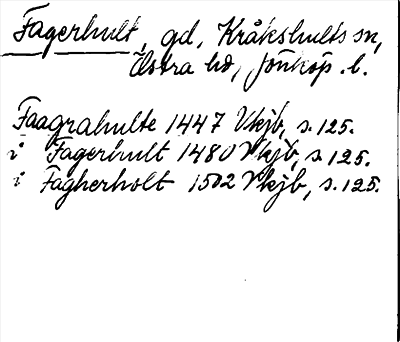 Fagerhult, gd, Kråkshults sn,
Östra hd, Jönköp. l.
Faagrahulte 1447 Vkjb, s. 125.
i Fagerhult 1480 Vkjb, s. 125.
i Fagherholt 1502 Vkjb, s. 125.